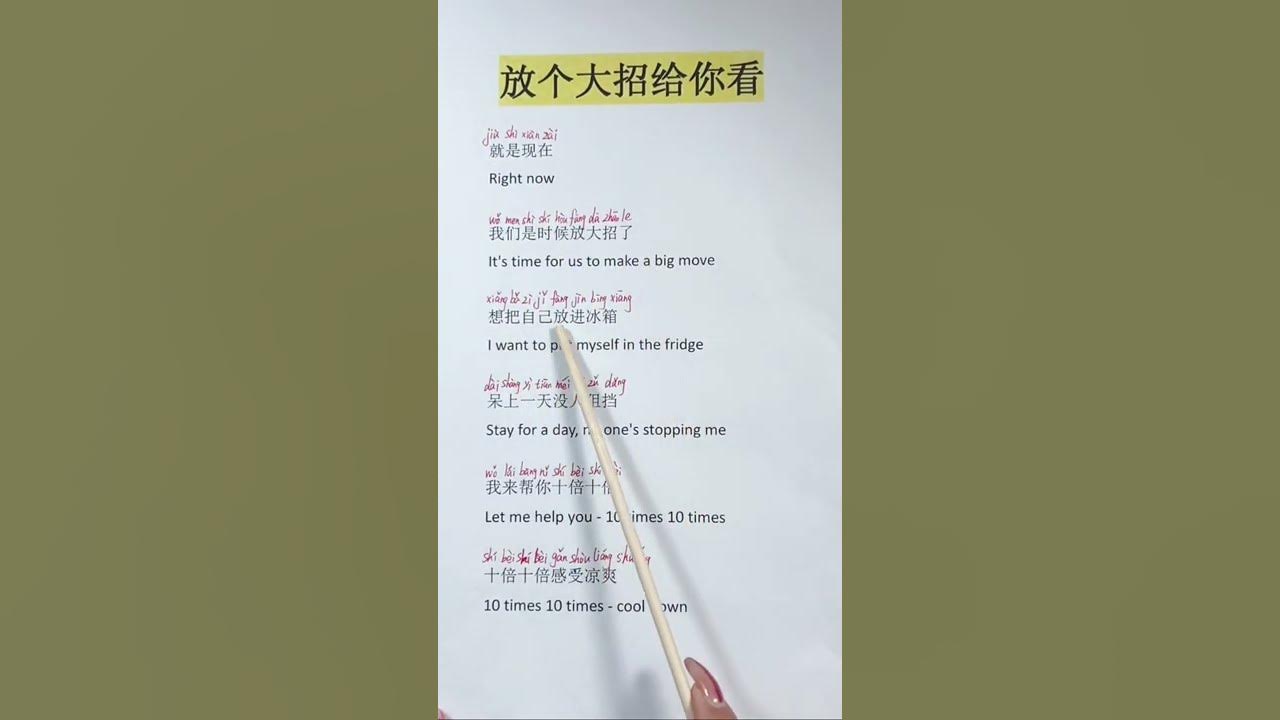 放个大招给你看
jiù shì xiàn zài
就是现在
Right now
wǒ men shì shí hòu fàng dà zhāo le
我们是时候放大招了
It's time for us to make a big move
xiǎng bǎ zì jǐ fàng jìn bīng xiāng
想把自己放进冰箱
I want to myself in the fridge
dāi shàng yì tiān méi zǔ dǎng
呆上一天没人阻挡
Stay for a day, one's stopping me
wǒ lái bāng nǐ shí bèi shí
我来帮你十倍十倍
Let me help you - 10 times 10 times
shí bèi shí bèi gǎn shòu liáng
十倍十倍感受凉爽
10 times 10 times - cool